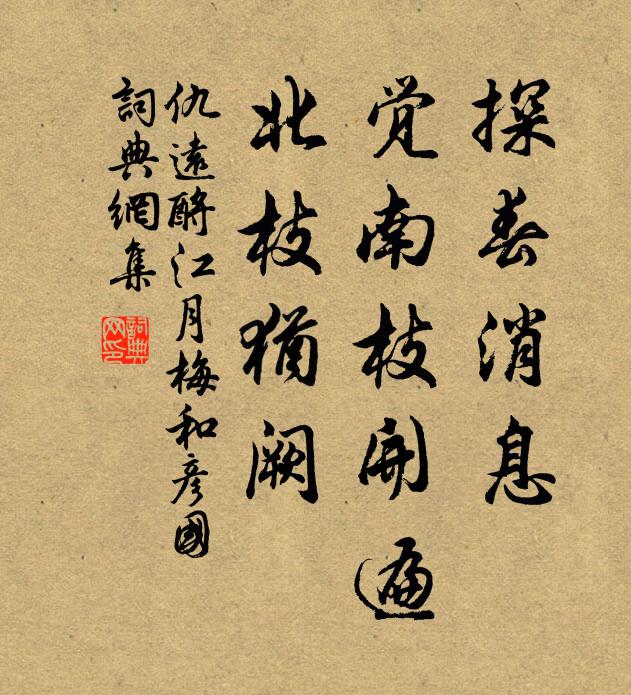 探春消息
觉南枝開遍
北枝猶阙
仇遠酹江月梅和彦國
詞典網集
詞典网印